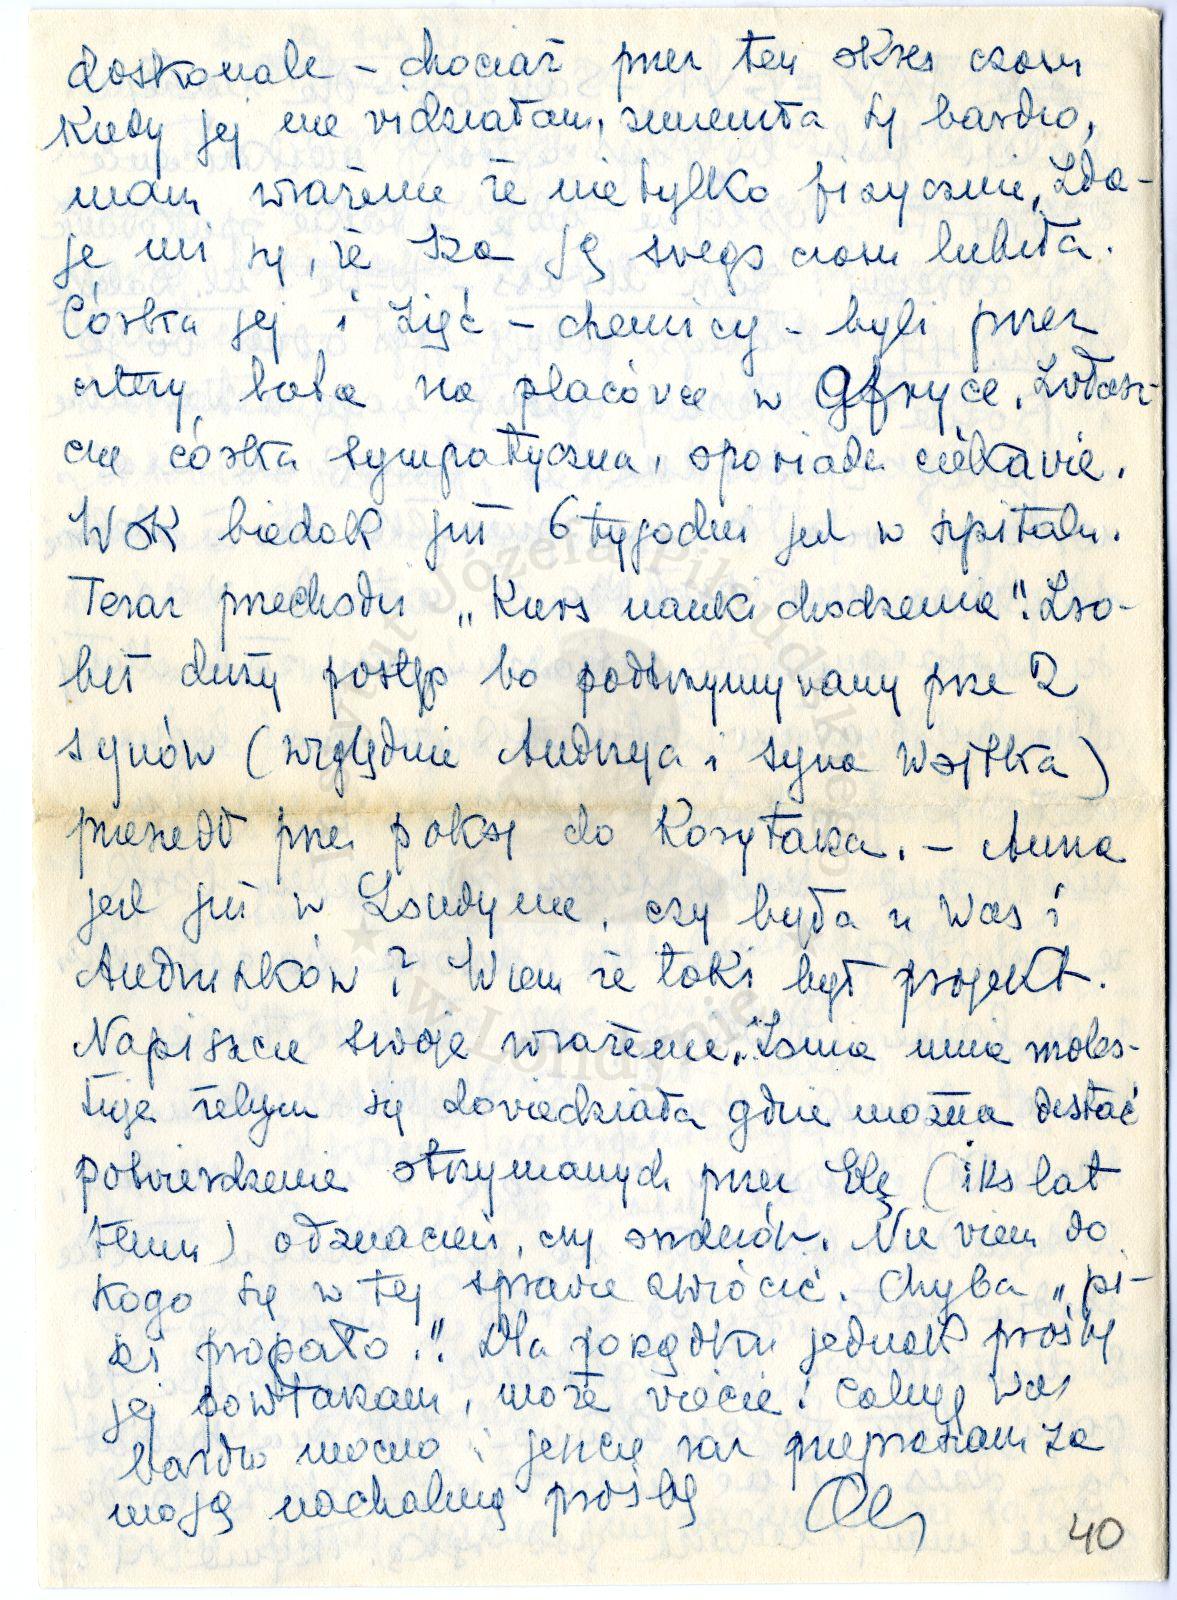 doskonale – chociaż przez ten okres czasu
kiedy jej nie widziałam, zmieniła się bardzo,
mam wrażenie że nie tylko fizycznie. Zda-
je mi się, że Iza ją swego czasu lubiła.
Córka jej i zięć – chemicy – byli przez
cztery lata na placówce w Afryce. Zwłasz-
cza córka sympatyczna, opowiada ciekawie.
Wok biedak już 6 tygodni jest w szpitalu.
Teraz przechodzi „Kurs nauki chodzenia". Zro-
bił duży postęp bo podtrzymywany prze 2
synów (względnie Andrzeja i syna Wojtka)
przeszedł prze pokój do korytarza. – Anna
jest już w Londynie, czy była u Was i
Andrusików? Wiem że taki był projekt.
Napiszcie swoje wrażenie. Zonia mnie moles-
tuje żebym się dowiedziała gdzie można dostać
potwierdzenie otrzymanych przez Elę (iks lat
temu) odznaczeń, czy orderów. Nie wiem do
kogo się w tej sprawie zwrócić. Chyba „pi-
si propało". Dla porządku jednak prośbę
jej powtarzam, może wiecie? Całuję Was
bardzo mocno i jeszcze raz przepraszam za
moją nachalną prośbę Ola
40
Instytut Józefa Piłsudskiego
w Londynie